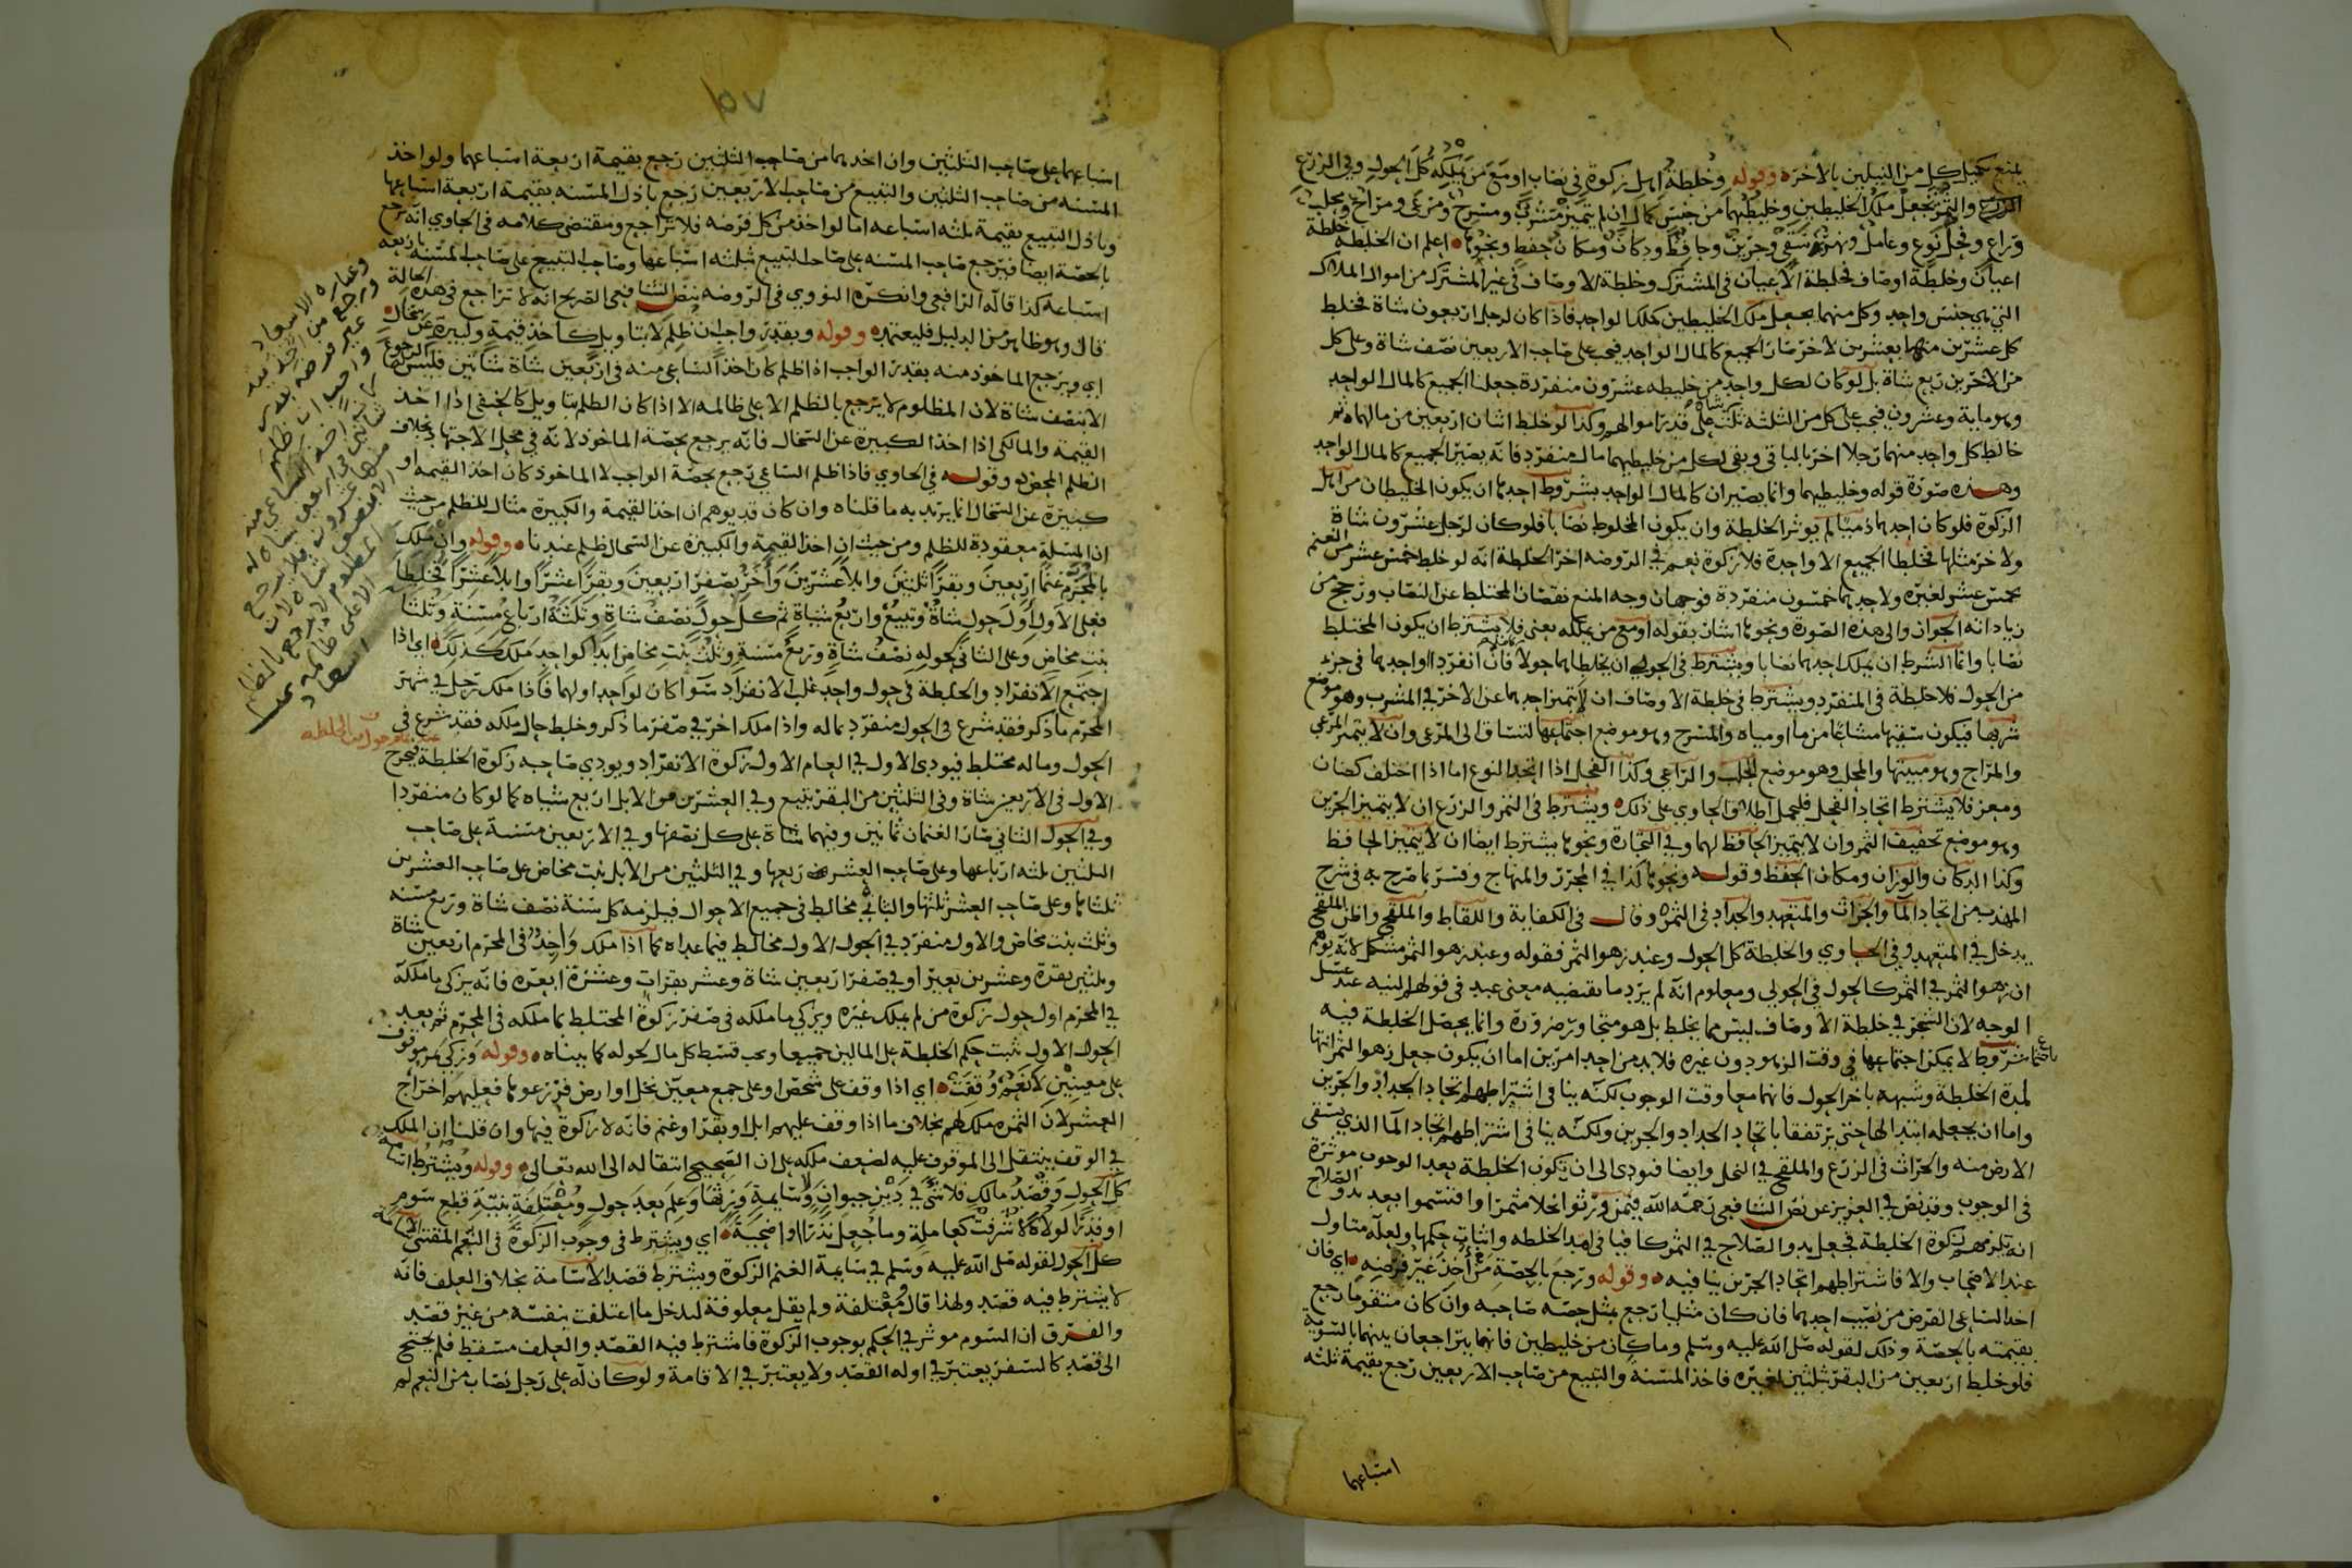 يمنع تكميل كل من النيلين بالآخر وقوله وخلطة اهل زكوة في نصاب او مع من يملكه كل الحول وفي الزرع
والثمر تجعل ملك الخليطين وخليطهما من جنس كمال ان لم يتميز مشرب ومسرح ومرعى ومراح ومحلب
وراع وفحل نوع وعامل ونهر سقي وجرين وحافظ ودكان ومكان حفظ ونحوها اعلم ان الخلطة خلطة
اعيان وخلطة اوصاف فخلطة الاعيان في المشترك وخلطة الاوصاف في غير المشترك من اموال الملاك
التي هي جنس واحد وكل منهما يجعل ملك الخليطين كملك الواحد فاذا كان لرجل اربعون شاة فخلط
كل عشرين منهما بعشرين لاخر صار الجميع كالمال الواحد فيجب على صاحب الاربعين نصف شاة وعلى كل
من الاخرين ربع شاة بل لو كان لكل واحد من خليطه عشرون منفردة جعلنا الجميع كالمال الواحد
وهو ماية وعشرون فيجب على كل من الثلثة ثلث شاة على قدر اموالهم وكذا لو خلط اثنان اربعين من مالهما ثم
خالط كل واحد منهما رجلا اخر بالباقي وبقى لكل من خليطيهما مال منفرد فانه يصير الجميع كالمال الواحد
وهذه صورة قوله وخليطيهما وانما يصيران كالمال الواحد بشروط احدها ان يكون الخليطان من اهل
الزكوة فلو كان احدهما ذميا لم يوثر الخلطة وان يكون المخلوط نصابا فلو كان لرجل عشرون شاة
ولاخر مثلها فخلطا الجميع الا واحدة فلا زكوة نعم في الروضة اخر الخلطة انه لو خلط خمس عشر من الغنم
بخمس عشر لغيره ولاحدهما خمسون منفردة فوجهان وجه المنع نقصان المختلط عن النصاب ورجح من
زياداته الجواز والى هذه الصورة ونحوها اشار بقوله او مع من يملكه يعني فلا يشترط ان يكون المختلط
نصابا وانما الشرط ان يملك احدهما نصابا ويشترط في الحولي ان يخلطاهما حولا كاملا فان انفرد الواحد هما في جزء
من الحول فلا خلطة في المنفرد ويشترط في خلطة الاوصاف ان لا يتميز احدهما عن الاخر في المشرب وهو موضع
شربها فيكون سقيها مشاعا من ما او مياه والمسرح وهو موضع اجتماعها لتنساق الى المرعى وان لا يتميز المرعى
والمراح وهو مبيتها والمحلب وهو موضع الحلب والراعي وكذا الفحل اذا اتحد النوع اما اذا اختلف كضان
ومعز فلا يشترط اتحاد الفحل فليحمل اطلاق الحاوي على ذلك ويشترط في الثمر والزرع ان لا يتميز الجرين
وهو موضع تجفيف الثمر وان لا يتميز الحافظ لهما وفي التجارة ونحوها يشترط ايضا ان لا يتميز الحافظ
وكذا الدكان والوزان ومكان الحفظ وقوله ونحوها كذا في المحرر والمنهاج وفسر بما صرح به في شرح
المهذب من اتحاد الما والحراث والمتعهد والجداد في الثمر وقال في الكفاية واللقاط والملقح واظن الملقح
يدخل في المتعهد وفي الحاوي والخلطة كل الحول وعند زهو الثمر فقوله وعند زهو الثمر مشكل لانه يوهم
ان زهو الثمر في الثمر كالحول في الحولي ومعلوم انه لم يرد ما يقتضيه معنى عبد في قولهم لبنيه عند غسل
الوجه لان الشجر في خلطة الاوصاف ليس مما يخلط بل هو متجاور ضرورة وانما يحصل الخلطة فيه
باجتماع شروط لا يمكن اجتماعها في وقت الزهو دون غيره فلا بد من احد امرين اما ان يكون جعل زهو الثمر انتها
لمدة الخلطة وشبهه باخر الحول فانهما معا وقت الوجوب لكنه ينافي اشتراطهم اتحاد الجداد والجرين
واما ان يجعله ابتدا لها حتى يرتفقا باتحاد الجداد والجرين ولكنه ينافي اشتراطهم اتحاد الما الذي يسقى
الارض منه والحراث في الزرع والملقح في النخل وايضا فيودي الى ان يكون الخلطة بعد الوجوب موثرة
في الوجوب وقد نص في العزيز عن نص الشافعي رحمه الله فيمن ورثوا نخلا مثمرا واقتسموا بعد بدو الصلاح
انه تلزمهم زكوة الخلطة فجعل بدو الصلاح في الثمر كافيا في امد الخلطة واثبات حكمها ولعله متاول
عند الاصحاب والا فاشتراطهم اتحاد الجرين ينافيه وقوله ورجع بالحصة من أخذ غير فرضه اي فان
اخذ الساعي الفرض من نصيب احدهما فان كان مثليا رجع بمثل حصه صاحبه وان كان متقوما رجع
بقيمته بالحصة وذلك لقوله صلى الله عليه وسلم وما كان من خليطين فانهما يتراجعان بينهما بالسوية
فلو خلط اربعين من البقر بثلثين لغيره فاخذ المسنة والتبيع من صاحب الاربعين رجع بقيمة ثلثه
اسباعهما
١٥٧
اسباعهما على صاحب الثلثين وان اخدهما من صاحب الثلثين رجع بقيمة اربعة اسباعهما ولو اخذ
المسنه من صاحب الثلثين والتبيع من صاحب الاربعين رجع باذل المسنه بقيمة اربعة اسباعها
وباذل التبيع بقيمة ثلثه اسباعه اما لو اخذ من كل فرضه فلا تراجع ومقتضى كلامه في الحاوي انه يرجع
بالحصة ايضا فيرجع صاحب المسنه على صاحب التبيع بثلثه اسباعها وصاحب التبيع على صاحب المسنه باربعه
اسباعه كذا قاله الرافعي وانكره النووي في الروضه بنص الشافعي الصريح انه لا تراجع في هذه الحالة
قال وهو ظاهر من الدليل فليعتمد وقوله وبقدر واجب ان ظلم لا بتاويل كاخذ قيمة وكبيرة عن سخال
اي ويرجع الماخوذ منه بقدر الواجب اذا ظلم كان اخذ الساعي منه في اربعين شاة شاتين فليس له الرجوع
الا بنصف شاة لان المظلوم لا يرجع بالظلم الا على ظالمه الا اذا كان الظلم بتاويل كالحنفي اذا اخذ
القيمة والمالكي اذا اخذ الكبيرة عن السخال فانه يرجع بحصة الماخوذ لانه في محل الاجتهاد بخلاف
الظلم المحض وقوله في الحاوي فاذا ظلم الساعي رجع بحصة الواجب لا الماخوذ كان اخذ القيمه او
كبيرة عن السخال انما يريد به ما قلناه وان كان قد يوهم ان اخذ القيمة والكبيرة مثال للظلم من حيث
ان المسئلة معقودة للظلم ومن حيث ان اخذ القيمة والكبيرة عن السخال ظلم عندنا وقوله وان ملك
بالمحرم غنما اربعين وبقرا ثلثين وابلا عشرين وآخر بصفر اربعين وبقرا عشرا وابلا عشرا فخلطا
فعلى الاول اول حول شاة وتبيع واربع شياة ثم كل حول نصف شاة وثلثة ارباع مسنة وثلثا
بنت مخاض وعلى الثاني لحوله نصف شاة وربع مسنة وثلث بنت مخاض ابدا كواحد ملك كذلك اي اذا
اجتمع الانفراد والخلطة في حول واحد غلب الانفراد سوا كان لواحد او لهما فاذا ملك رجل في شهر
المحرم ما ذكر فقد شرع في الحول منفرد بماله واذا ملك اخر في صفر ما ذكر وخلط حال ملكه فقد شرع في
الحول وماله مختلط فيودي الاول في العام الاول زكوة الانفراد ويودي صاحبه زكوة الخلطة فيخرج
الاول في الاربعين شاة وفي الثلثين من البقر تبيع وفي العشرين من الابل اربع شياه كما لو كان منفردا
وفي الحول الثاني صار الغنمان ثمانين وفيهما شاة على كل نصفها وفي الاربعين مسنة على صاحب
الثلثين ثلثه ارباعها وعلى صاحب العشر ربعها وفي الثلثين من الابل بنت مخاض على صاحب العشرين
ثلثاها وعلى صاحب العشر ثلثها والثاني مخالط في جميع الاحوال فيلزمه كل سنة نصف شاة وربع مسنه
وثلث بنت مخاض والاول منفرد في الحول الاول مخالط فيما عداه كما اذا ملك واحد في المحرم اربعين شاة
وثلثين بقرة وعشرين بعيرا وفي صفر اربعين شاة وعشر بقرات وعشرة ابعره فانه يزكي ما ملكه
في المحرم اول حول زكوة من لم يملك غيره ويزكي ما ملكه في صفر زكوة المختلط بما ملكه في المحرم ثم بعد
الحول الاول ثبت حكم الخلطة على المالين جميعا ويجب قسط كل مال لحوله كما بيناه وقوله وزكي ثمر موقوف
على معينين لا نعم وقفت اي اذا وقف على شخص او على جمع معين نخل او ارض فزرعوها فعليهم اخراج
العشر لان الثمره ملك لهم بخلاف ما اذا وقف عليهم ابل او بقر او غنم فانه لا زكوة فيها وان قلنا ان الملك
في الوقف ينتقل الى الموقوف عليه لضعف ملكه على ان الصحيح انتقاله الى الله تعالى وقوله ويشترط اسامة
كل الحول وقصد مالك فلا شي في دين حيوان وسايمة ورثها وعلم بعد حول ومعتلفة بنية قطع سوم
او قدرا لولاه لأشرفت كعاملة وما جعل نذرا او اضحية اي ويشترط في وجوب الزكوة في النعم المقتنى الاسامة
كل الحول لقوله صلى الله عليه وسلم في سايمة الغنم الزكوة ويشترط قصد الاسامة بخلاف العلف فانه
لا يشترط فيه قصد ولهذا قال معتلفة ولم يقل معلوفة ليدخل ما اعتلفت بنفسه من غير قصد
والفرق ان السوم موثر في الحكم بوجوب الزكوة فاشترط فيه القصد والعلف مسقط فلم يحتج
الى قصد كالسفر يعتبر في اوله القصد ولا يعتبر في الاقامة ولو كان له على رجل نصاب من النعم لم
وعباره الاسعاد
ورجع من اخذ منه
غير فرضه بقدر
واجب ان ظلم
كان اخذ الساعي منه
شاتين في اربعين شاة له
منها عشرون فلا يرجع
الا بنصف شاة لان
المظلوم لا يرجع بالظلم
الا على ظالمه
اسعاد